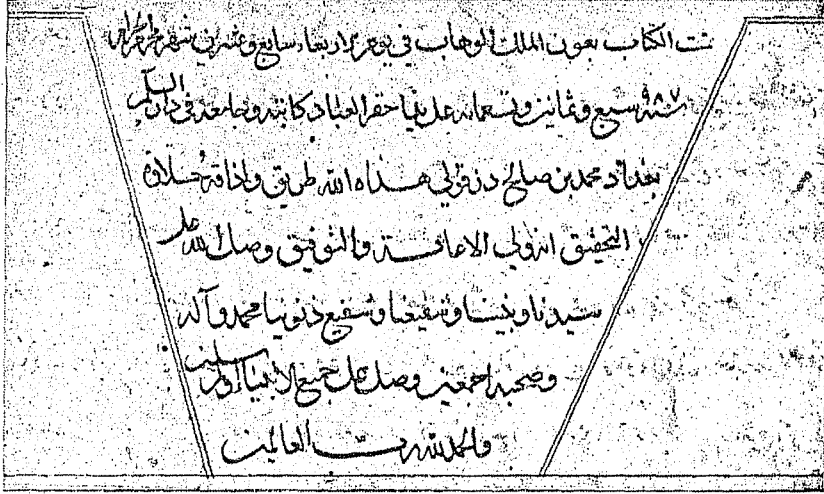 تمت الكتاب بعون الملك الوهاب في يوم اربعاء سابع وعشرين شهر
سنه ٩٨٧ سبع وثمانين وتسعمايه على يد احقر العباد كاتبه وجامعه في دار السلم
بغداد محمد بن صالح دزفولي هداه الله طريق واذاقه حلاوة
التحقيق انه ولي الاعانة والتوفيق وصلى الله على
سيدنا ونبينا وشفيعنا وشفيع ذنوبنا محمد وآله
وصحبه اجمعين وصل على جميع الانبياء والمرسلين
والحمد لله رب العالمين